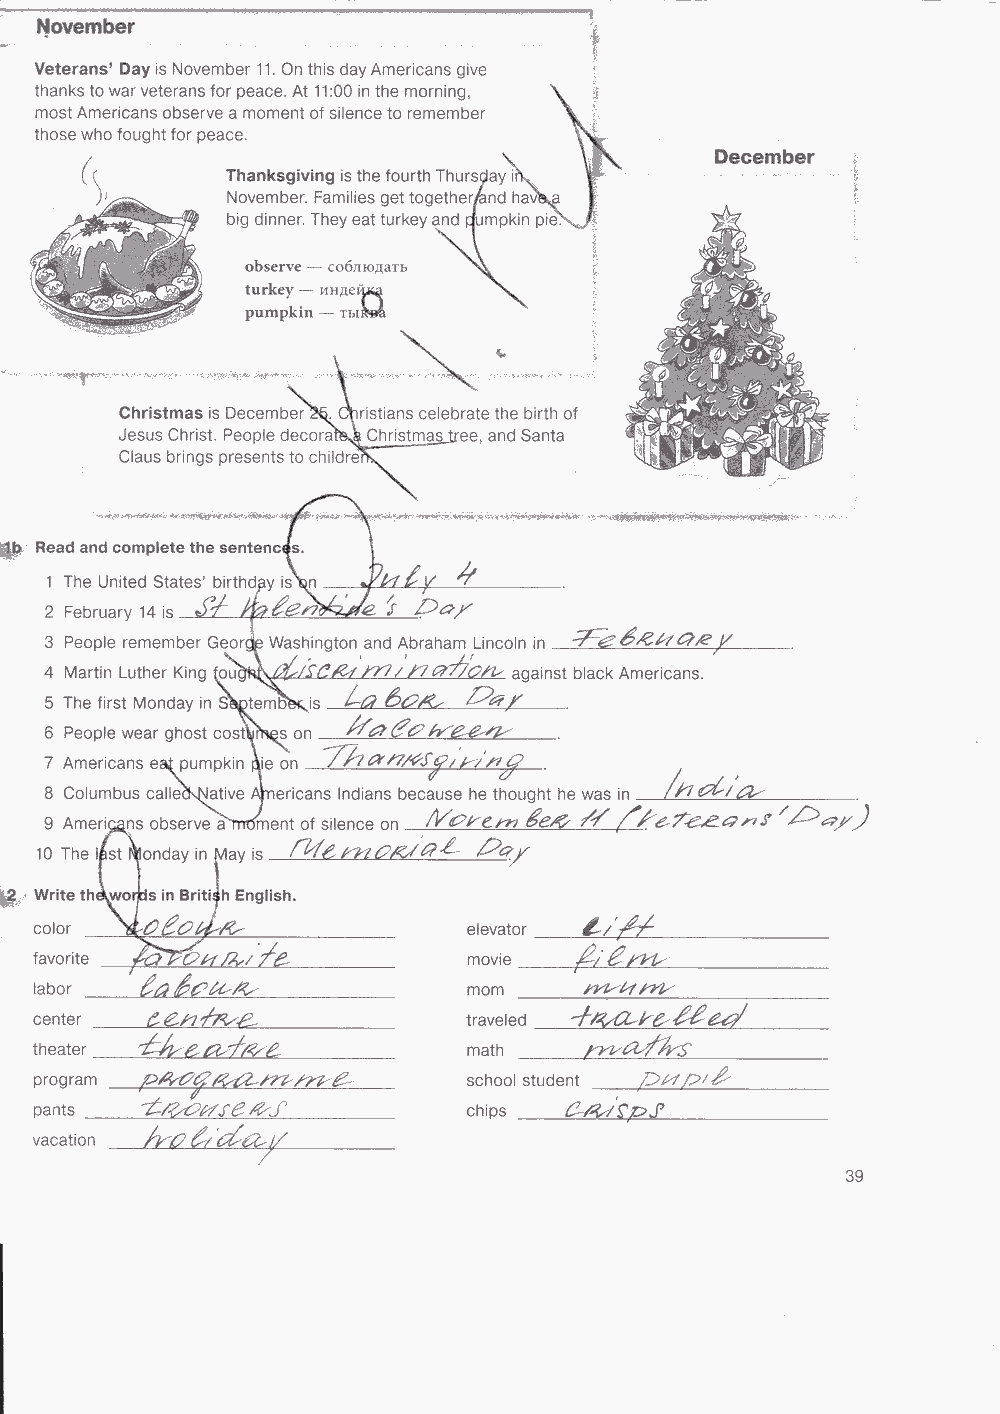 November
Veterans' Day is November 11. On this day Americans give
thanks to war veterans for peace. At 11:00 in the morning,
most Americans observe a moment of silence to remember
those who fought for peace.
Thanksgiving is the fourth Thursday in
November. Families get together and have a
big dinner. They eat turkey and pumpkin pie.
observe — соблюдать
turkey — индейка
pumpkin — тыква
December
Christmas is December 25. Christians celebrate the birth of
Jesus Christ. People decorate a Christmas tree, and Santa
Claus brings presents to children.
1b Read and complete the sentences.
1 The United States' birthday is on July 4.
2 February 14 is St Valentine's Day
3 People remember George Washington and Abraham Lincoln in February.
4 Martin Luther King fought discrimination against black Americans.
5 The first Monday in September is Labor Day.
6 People wear ghost costumes on Haloween.
7 Americans eat pumpkin pie on Thanksgiving.
8 Columbus called Native Americans Indians because he thought he was in India.
9 Americans observe a moment of silence on November 11 (Veterans' Day)
10 The last Monday in May is Memorial Day
2 Write the words in British English.
color colour
favorite favourite
labor labour
center centre
theater theatre
program programme
pants trousers
vacation holiday
elevator lift
movie film
mom mum
traveled travelled
math maths
school student pupil
chips crisps
39